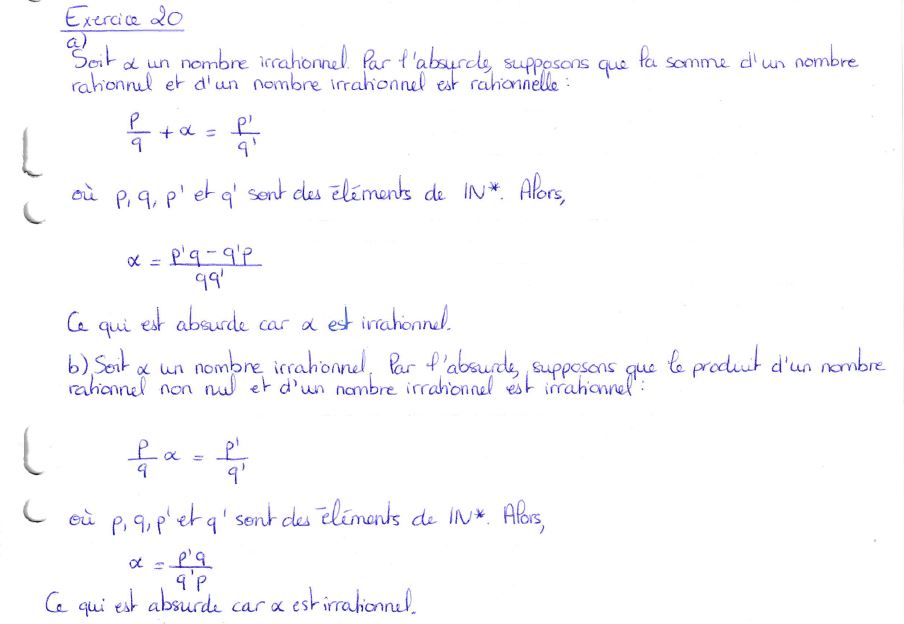 Exercice 20
a)
Soit α un nombre irrationnel. Par l'absurde, supposons que la somme d'un nombre
rationnel et d'un nombre irrationnel est rationnelle :
p/q + α = p'/q'
où p, q, p' et q' sont des éléments de IN*. Alors,
α = (p'q - q'p)/(qq')
Ce qui est absurde car α est irrationnel.
b) Soit α un nombre irrationnel. Par l'absurde, supposons que le produit d'un nombre
rationnel non nul et d'un nombre irrationnel est irrationnel :
p/q α = p'/q'
où p, q, p' et q' sont des éléments de IN*. Alors,
α = p'q/q'p
Ce qui est absurde car α est irrationnel.